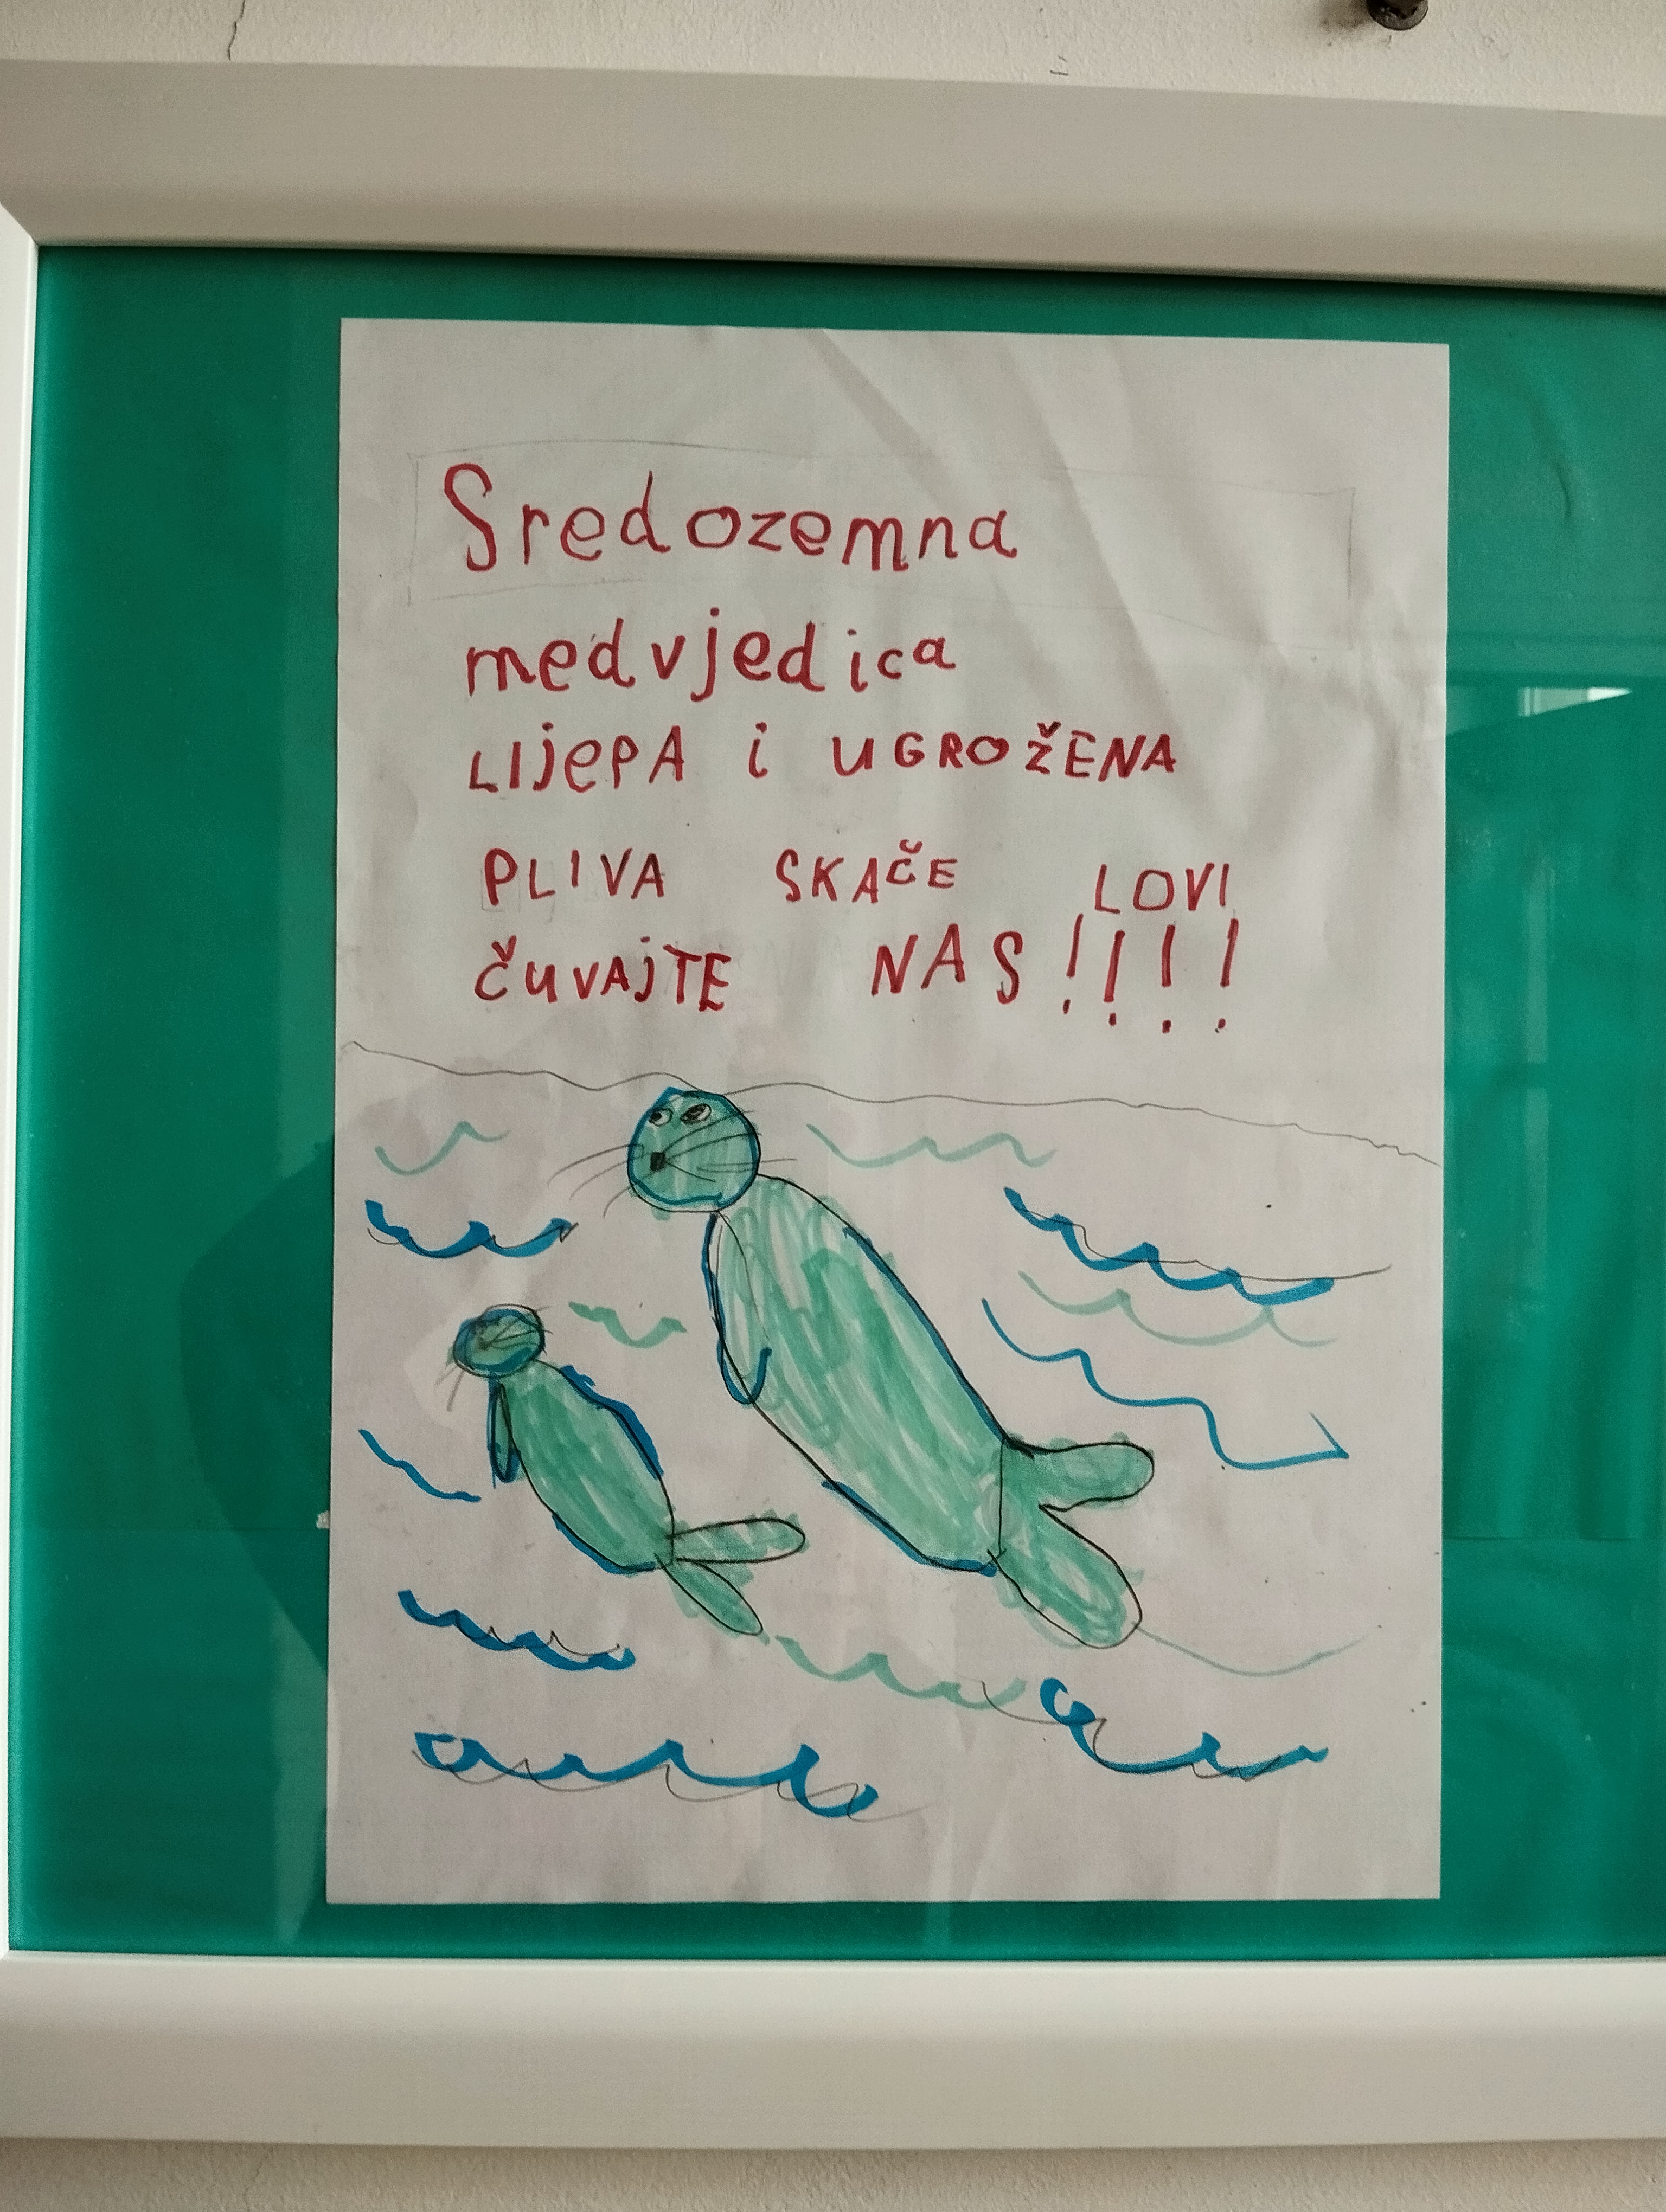 Sredozemna
medvjedica
LIjePA i UGROŽENA
PLIVA SKAČE LOVI
ČUVAjTE NAS!!!!